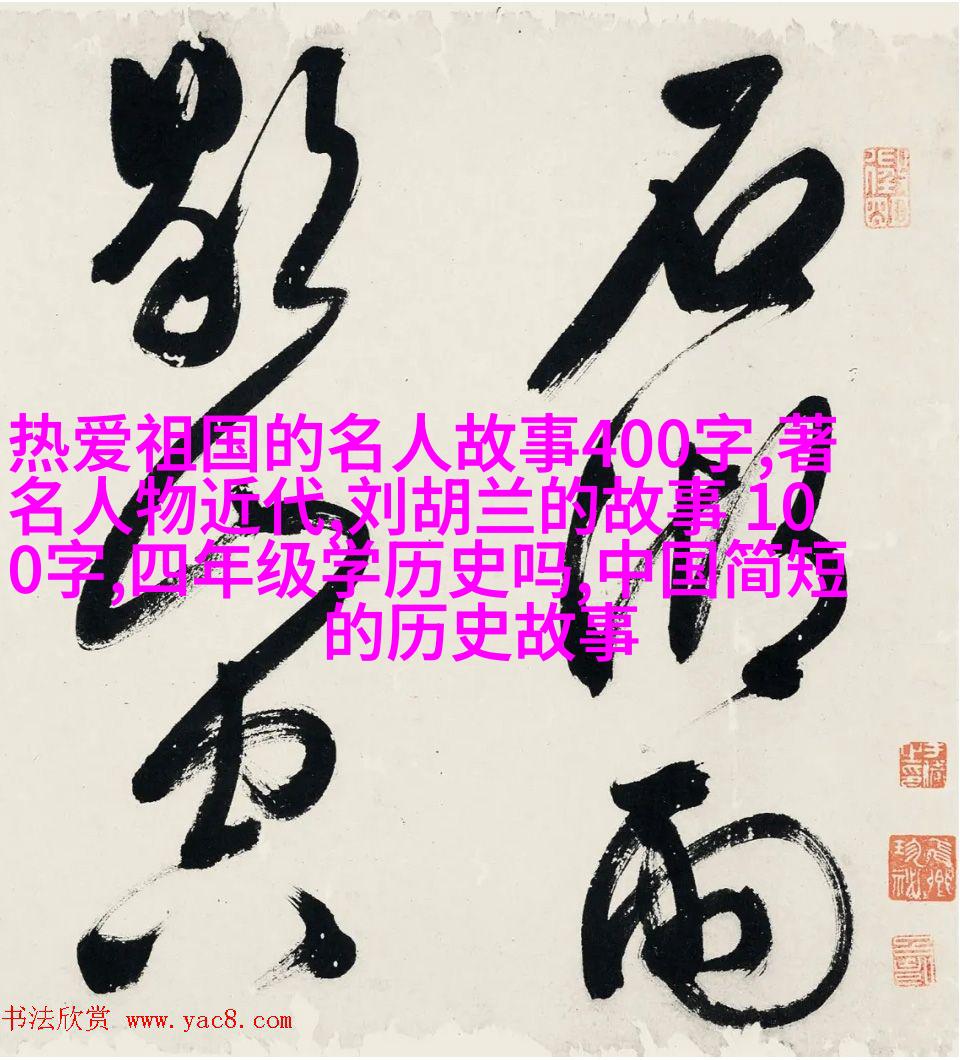 石湖雨
歇山空
热爱祖国的名人故事400字,著
名人物近代,刘胡兰的故事 10
0字,四年级学历史吗,中国简短
的历史故事
书法欣赏 www.yac8.com